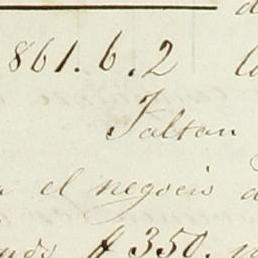 861.6.2 l
Faltan
el negocio d
$350.